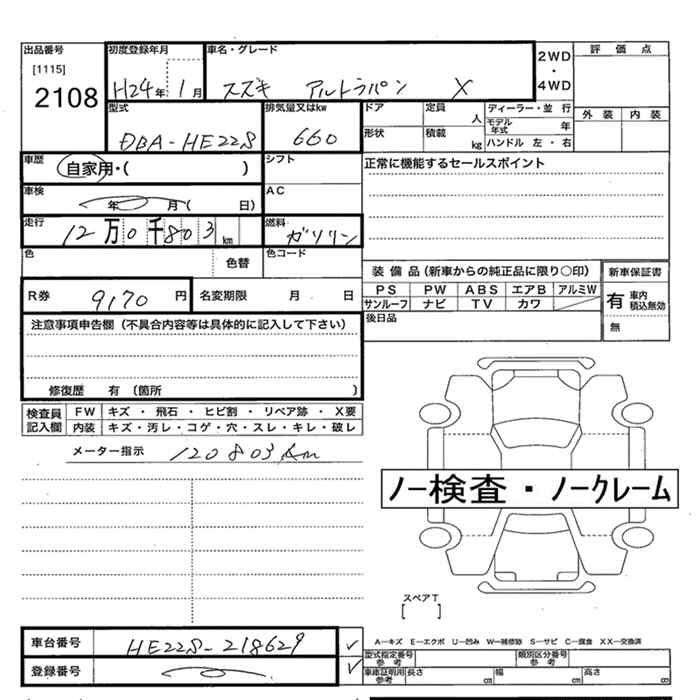 出品番号 初度登録年月 車名・グレード 評価点
[1115] 2WD
2108 H24年 1月 スズキ アルトラパン X ・
4WD
型式 排気量又はkw ドア 定員 人 ディーラー・並 行 外装 内装
DBA-HE22S 660 形状 積載 kg モデル年式 年
ハンドル 左・右
車歴 自家用・( ) シフト 正常に機能するセールスポイント
車検 年 月( 日) AC
走行 12万0千803km 燃料 ガソリン
色 色替 色コード
装備品(新車からの純正品に限り○印) 新車保証書
R券 9170円 名変期限 月 日 PS PW ABS エアB アルミW 有 車内積込無効
サンルーフ ナビ TV カワ
注意事項申告欄(不具合内容等は具体的に記入して下さい) 後日品 無
修復歴 有 (箇所 )
検査員記入欄 FW キズ ・ 飛石 ・ ヒビ割 ・ リペア跡 ・ X要
内装 キズ・汚レ・コゲ・穴・スレ・キレ・破レ
メーター指示 120803km
ノー検査・ノークレーム
スペアT
[ ]
車台番号 HE22S-218629 ✓ A―キズ E―エクボ U―凹み W―補修跡 S―サビ C―腐食 XX―交換済
型式指定番号 参考 類別区分番号 参考
登録番号 ✓ 車庫証明用 参考 長さ cm 幅 cm 高さ cm